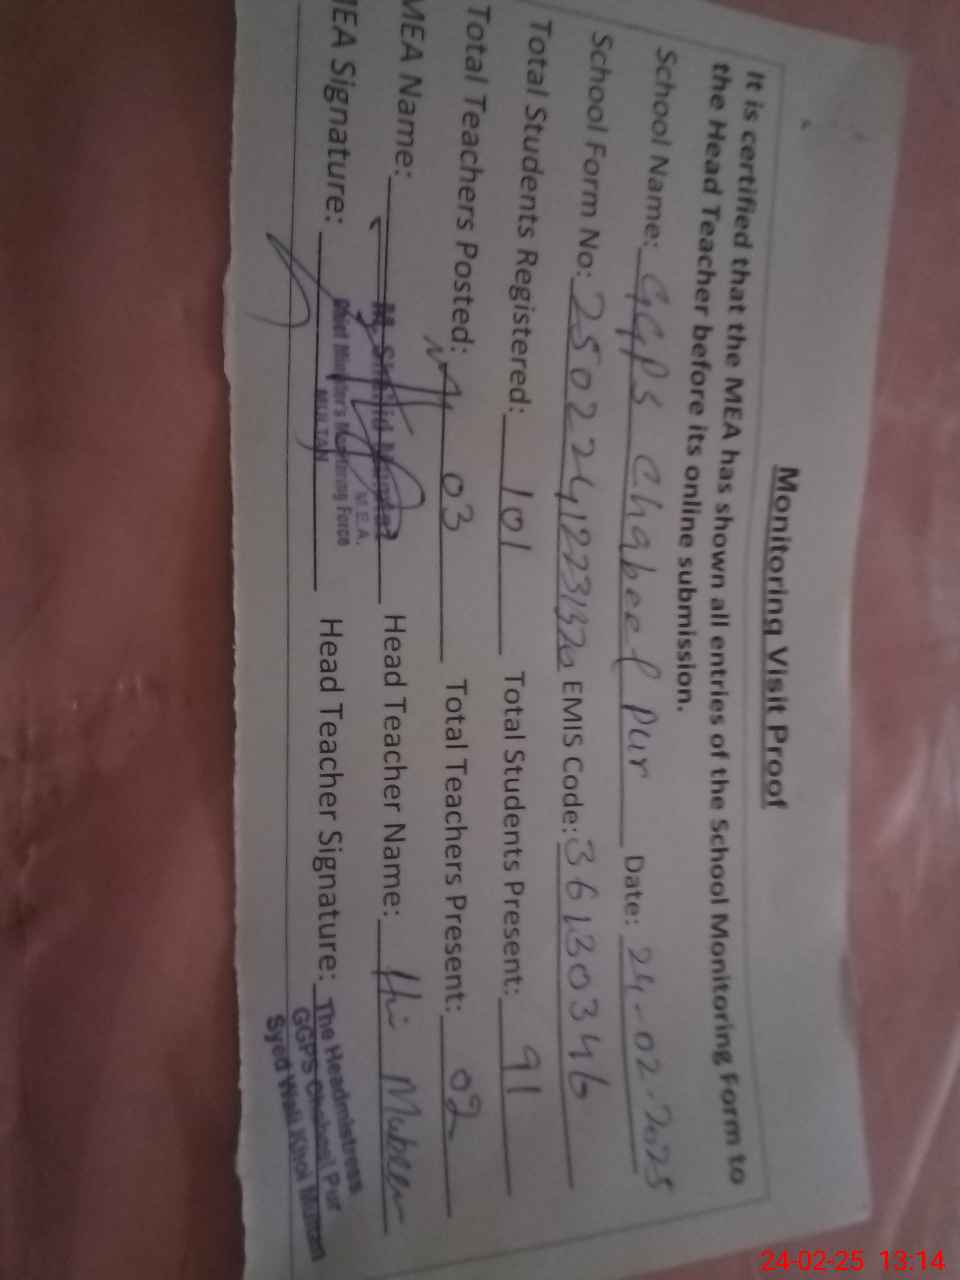 Monitoring Visit Proof
It is certified that the MEA has shown all entries of the School Monitoring Form to
the Head Teacher before its online submission.
School Name: GGPS Chabeel Pur Date: 24-02-2025
School Form No: EMIS Code: 36130346
Total Students Registered: 101 Total Students Present: 91
Total Teachers Posted: 03 Total Teachers Present: 02
MEA Name: Head Teacher Name: Mubeen
M.E.A.
MEA Signature: Head Teacher Signature: The Headmistress
Chief Minister's Monitoring Force
MULTAN
GGPS Chabeel Pur
Syed Wali Khoi Multan
24-02-25 13:14